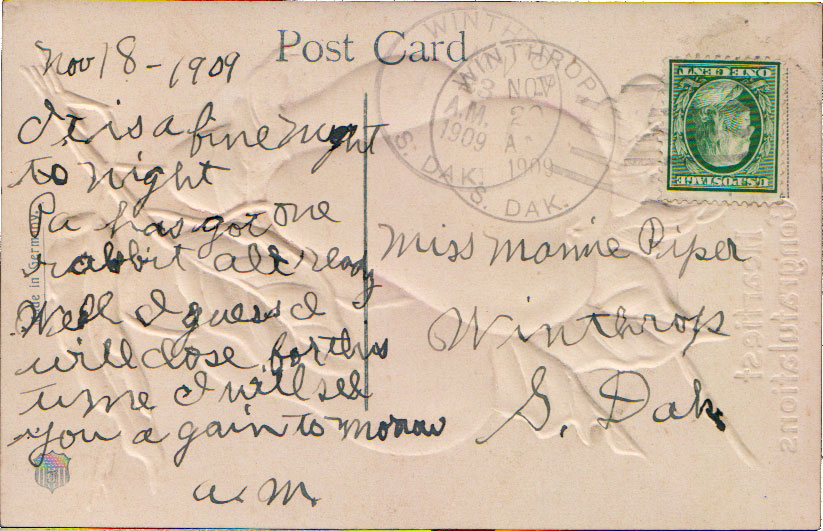 Post Card
Nov 18 - 1909
It is a fine night
to night
Pa has got one
rabbit all ready
Well I guess I
will close for this
time I will see
you again to morrow
a. m.
Miss Mamie Piper
Winthrop
S. Dak.
WINTHROP
NOV
A.M.
1909
S. DAK.
WINTHROP
1909
S. DAK.
U.S. POSTAGE
ONE CENT
Made in Germany.
Heartiest
Congratulations